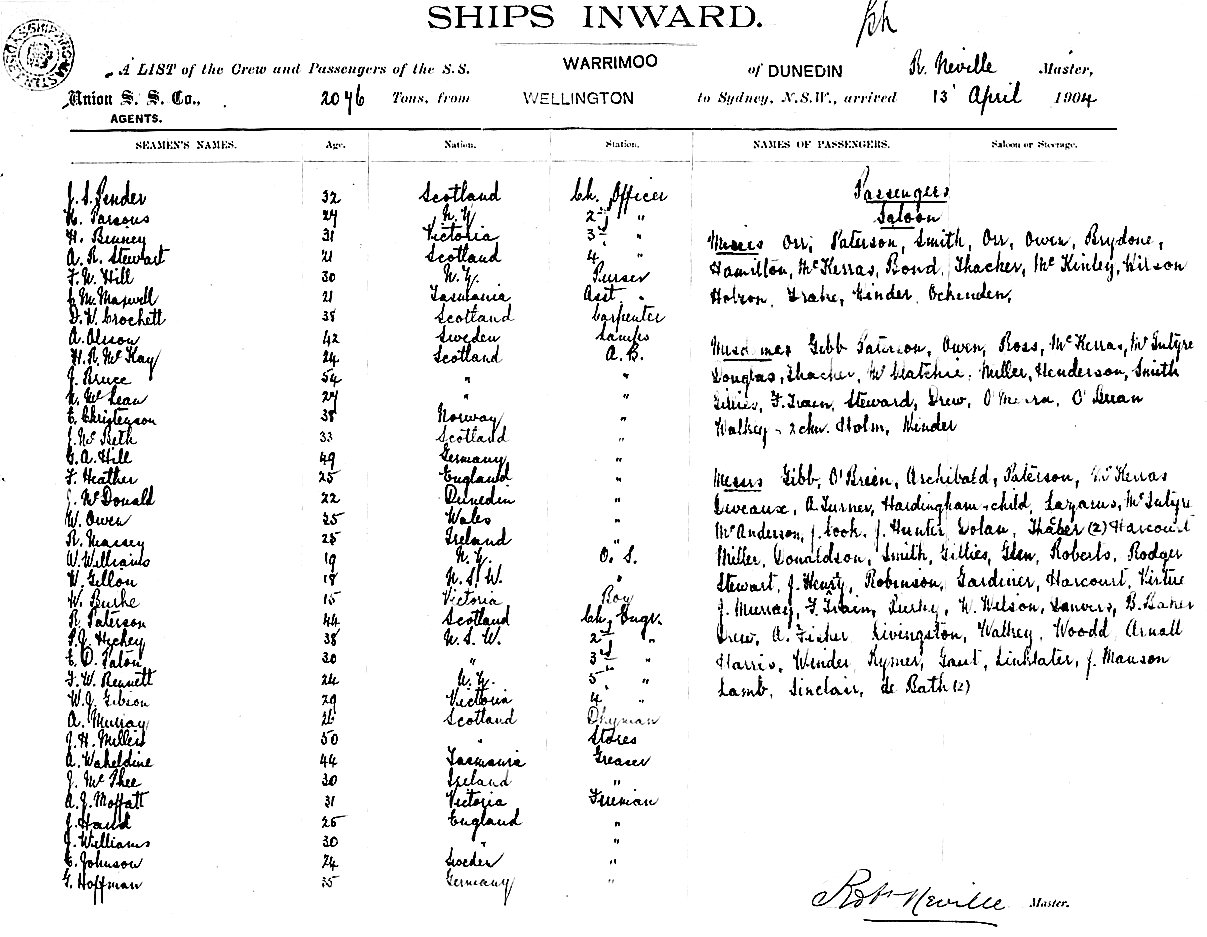 SHIPS INWARD.
A LIST of the Crew and Passengers of the S.S. WARRIMOO of DUNEDIN R. Neville Master,
Union S. S. Co., 2076 Tons, from WELLINGTON to Sydney, N.S.W., arrived 13 April 1904
AGENTS.
SEAMEN'S NAMES. Age. Nation. Station. NAMES OF PASSENGERS. Saloon or Steerage.
J. S. Pender 32 Scotland Ch. Officer
Passengers
Saloon
Parsons N.Z. 2nd "
H. Benney 31 Victoria 3rd "
A. R. Stewart 21 Scotland 4 "
F. W. Hill 30 N.Z. Purser
J. M. Maxwell 21 Tasmania Asst. "
D. W. Crockett 38 Scotland Carpenter
A. Olsson 42 Sweden Lamps
H. R. McKay 24 Scotland A.B.
J. Bruce 54 " "
McLean " "
E. Christenson 38 Norway "
J. McBeth 33 Scotland "
C. A. Hill 49 Germany "
F. Heather 25 England "
McDonald 22 Dunedin "
W. Owen Wales "
R. Massey Ireland "
W. Williams 19 N.Z. O.S.
W. Gellon 18 N.S.W. "
W. Burke 15 Victoria Boy
R. Paterson 44 Scotland Ch. Engr.
P. J. Hickey 38 N.S.W. 2nd "
E. D. Paton 30 " 3rd "
F. W. Bennett 24 N.Z. 5 "
W. J. Gibson 29 Victoria 4 "
A. Murray Scotland
J. H. Millers 50 " Stores
A. Wakeldine 44 Tasmania Greaser
J. McPhee 30 Ireland "
A. J. Moffatt 31 Victoria Fireman
J. Hand England "
J. Williams 30 " "
C. Johnson 24 Sweden "
G. Hoffman Germany "
Misses Orr, Paterson, Smith, Orr, Owen, Brydone,
Hamilton, McKerras, Bond, Thacker, McKinley, Wilson
Hobson, Ockenden,
Mesdames Gibb Paterson, Owen, Ross, McKerras, McIntyre
Douglas, Thacker, McClatchie, Miller, Henderson, Smith
Gillies, F. Train, Steward, Drew, O'Meara,
Walkey - 2 chn. Holm, Winder
Messrs Gibb, O'Brien, Archibald, Paterson, McKerras
A. Turner, Hardingham + child, Lazarus, McIntyre
McAnderson, J. Cook, J. Hunter, Dolan, (2) Harcourt
Miller, Donaldson, Smith, Gillies, Glen, Roberts, Rodger
Stewart, J. Henry, Robinson, Gardiner, Harcourt, Virtue
J. Murray, F. Train, W. Wilson, Danvers, B. Baker
Drew, A. Fisher Livingston, Walkey, Woodd, Arnall
Harris, Winder, Rymer, Gaut, Linklater, J. Manson
Lamb, Sinclair, de Bath (2)
Robt Neville Master.